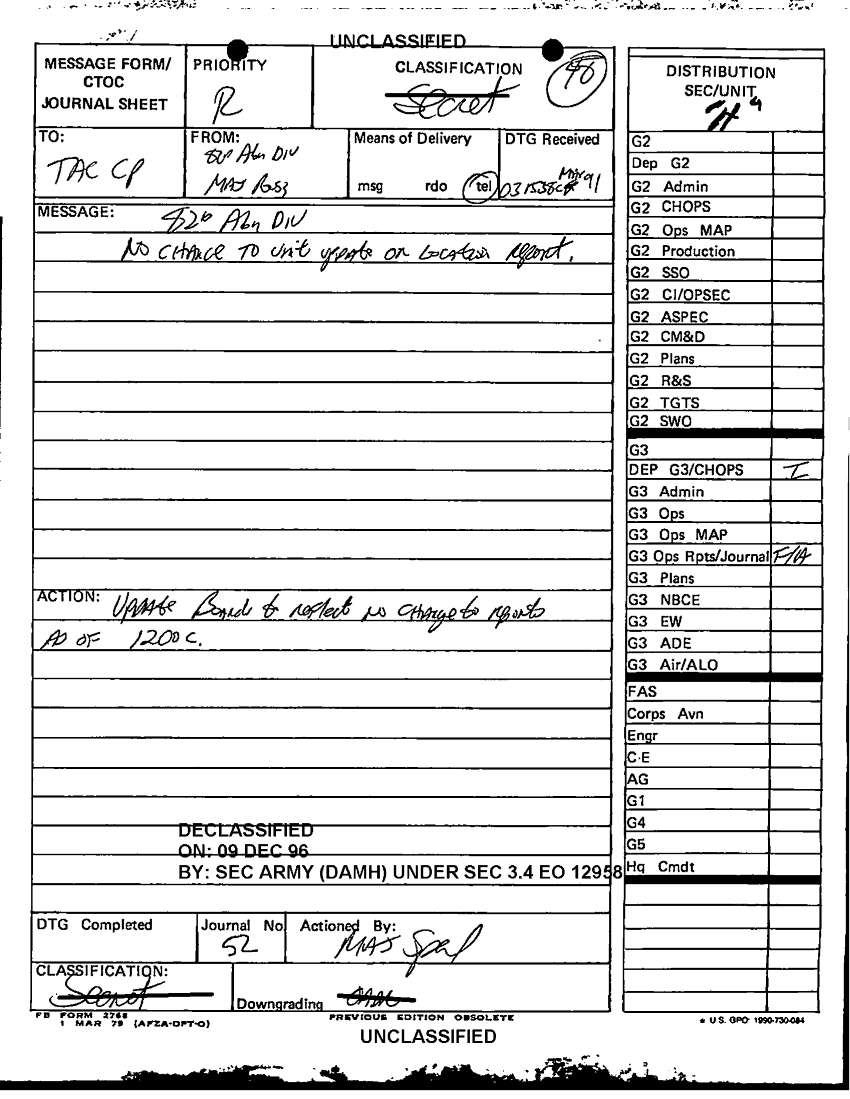 UNCLASSIFIED
MESSAGE FORM/
CTOC
JOURNAL SHEET
PRIORITY
R
CLASSIFICATION
Secret
46
TO:
TAC CP
FROM:
82D Abn DIV
MAJ
Means of Delivery
msg rdo tel
DTG Received
MAR 91
MESSAGE:
82D Abn DIV
NO CHANGE TO unit update or Location report.
ACTION:
UPDATE Board to reflect no change to reports
AS OF 1200 C.
DECLASSIFIED
ON: 09 DEC 96
BY: SEC ARMY (DAMH) UNDER SEC 3.4 EO 12958
DTG Completed
Journal No
52
Actioned By:
MAJ
CLASSIFICATION:
Secret
Downgrading
FB FORM 2768
1 MAR 79 (AFZA-DPT-O)
PREVIOUS EDITION OBSOLETE
UNCLASSIFIED
DISTRIBUTION
SEC/UNIT
"H"
G2
Dep G2
G2 Admin
G2 CHOPS
G2 Ops MAP
G2 Production
G2 SSO
G2 CI/OPSEC
G2 ASPEC
G2 CM&D
G2 Plans
G2 R&S
G2 TGTS
G2 SWO
G3
DEP G3/CHOPS I
G3 Admin
G3 Ops
G3 Ops MAP
G3 Ops Rpts/Journal F/A
G3 Plans
G3 NBCE
G3 EW
G3 ADE
G3 Air/ALO
FAS
Corps Avn
Engr
C-E
AG
G1
G4
G5
Hq Cmdt
* U.S. GPO: 1990-730-084